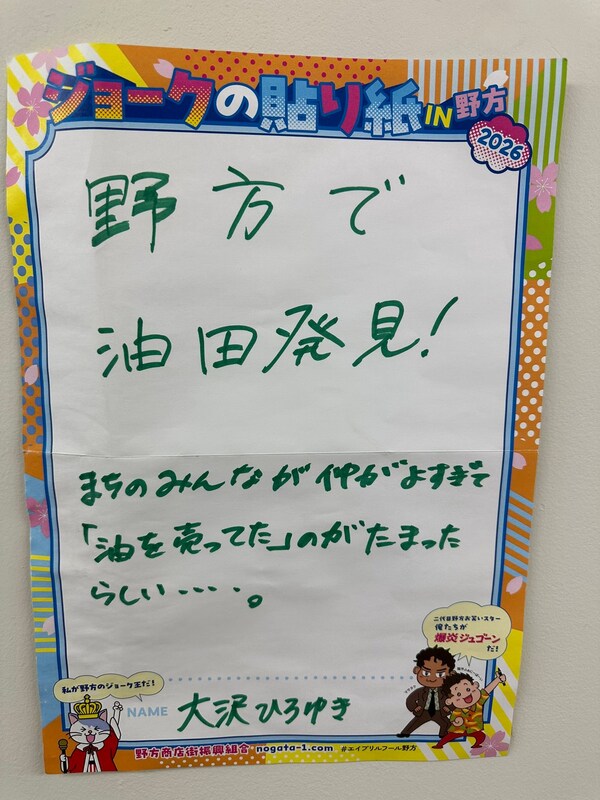 ジョークの貼り紙IN野方
2026
野方で
油田発見!
まちのみんなが仲がよすぎて
「油を売ってた」のがたまった
らしい‥‥。
二代目野方お笑いスター
俺たちが
爆炎ジュゴーン
だ!
私が野方のジョーク王だ!
NAME 大沢ひろゆき
野方商店街振興組合 nogata-1.com #エイプリルフール野方